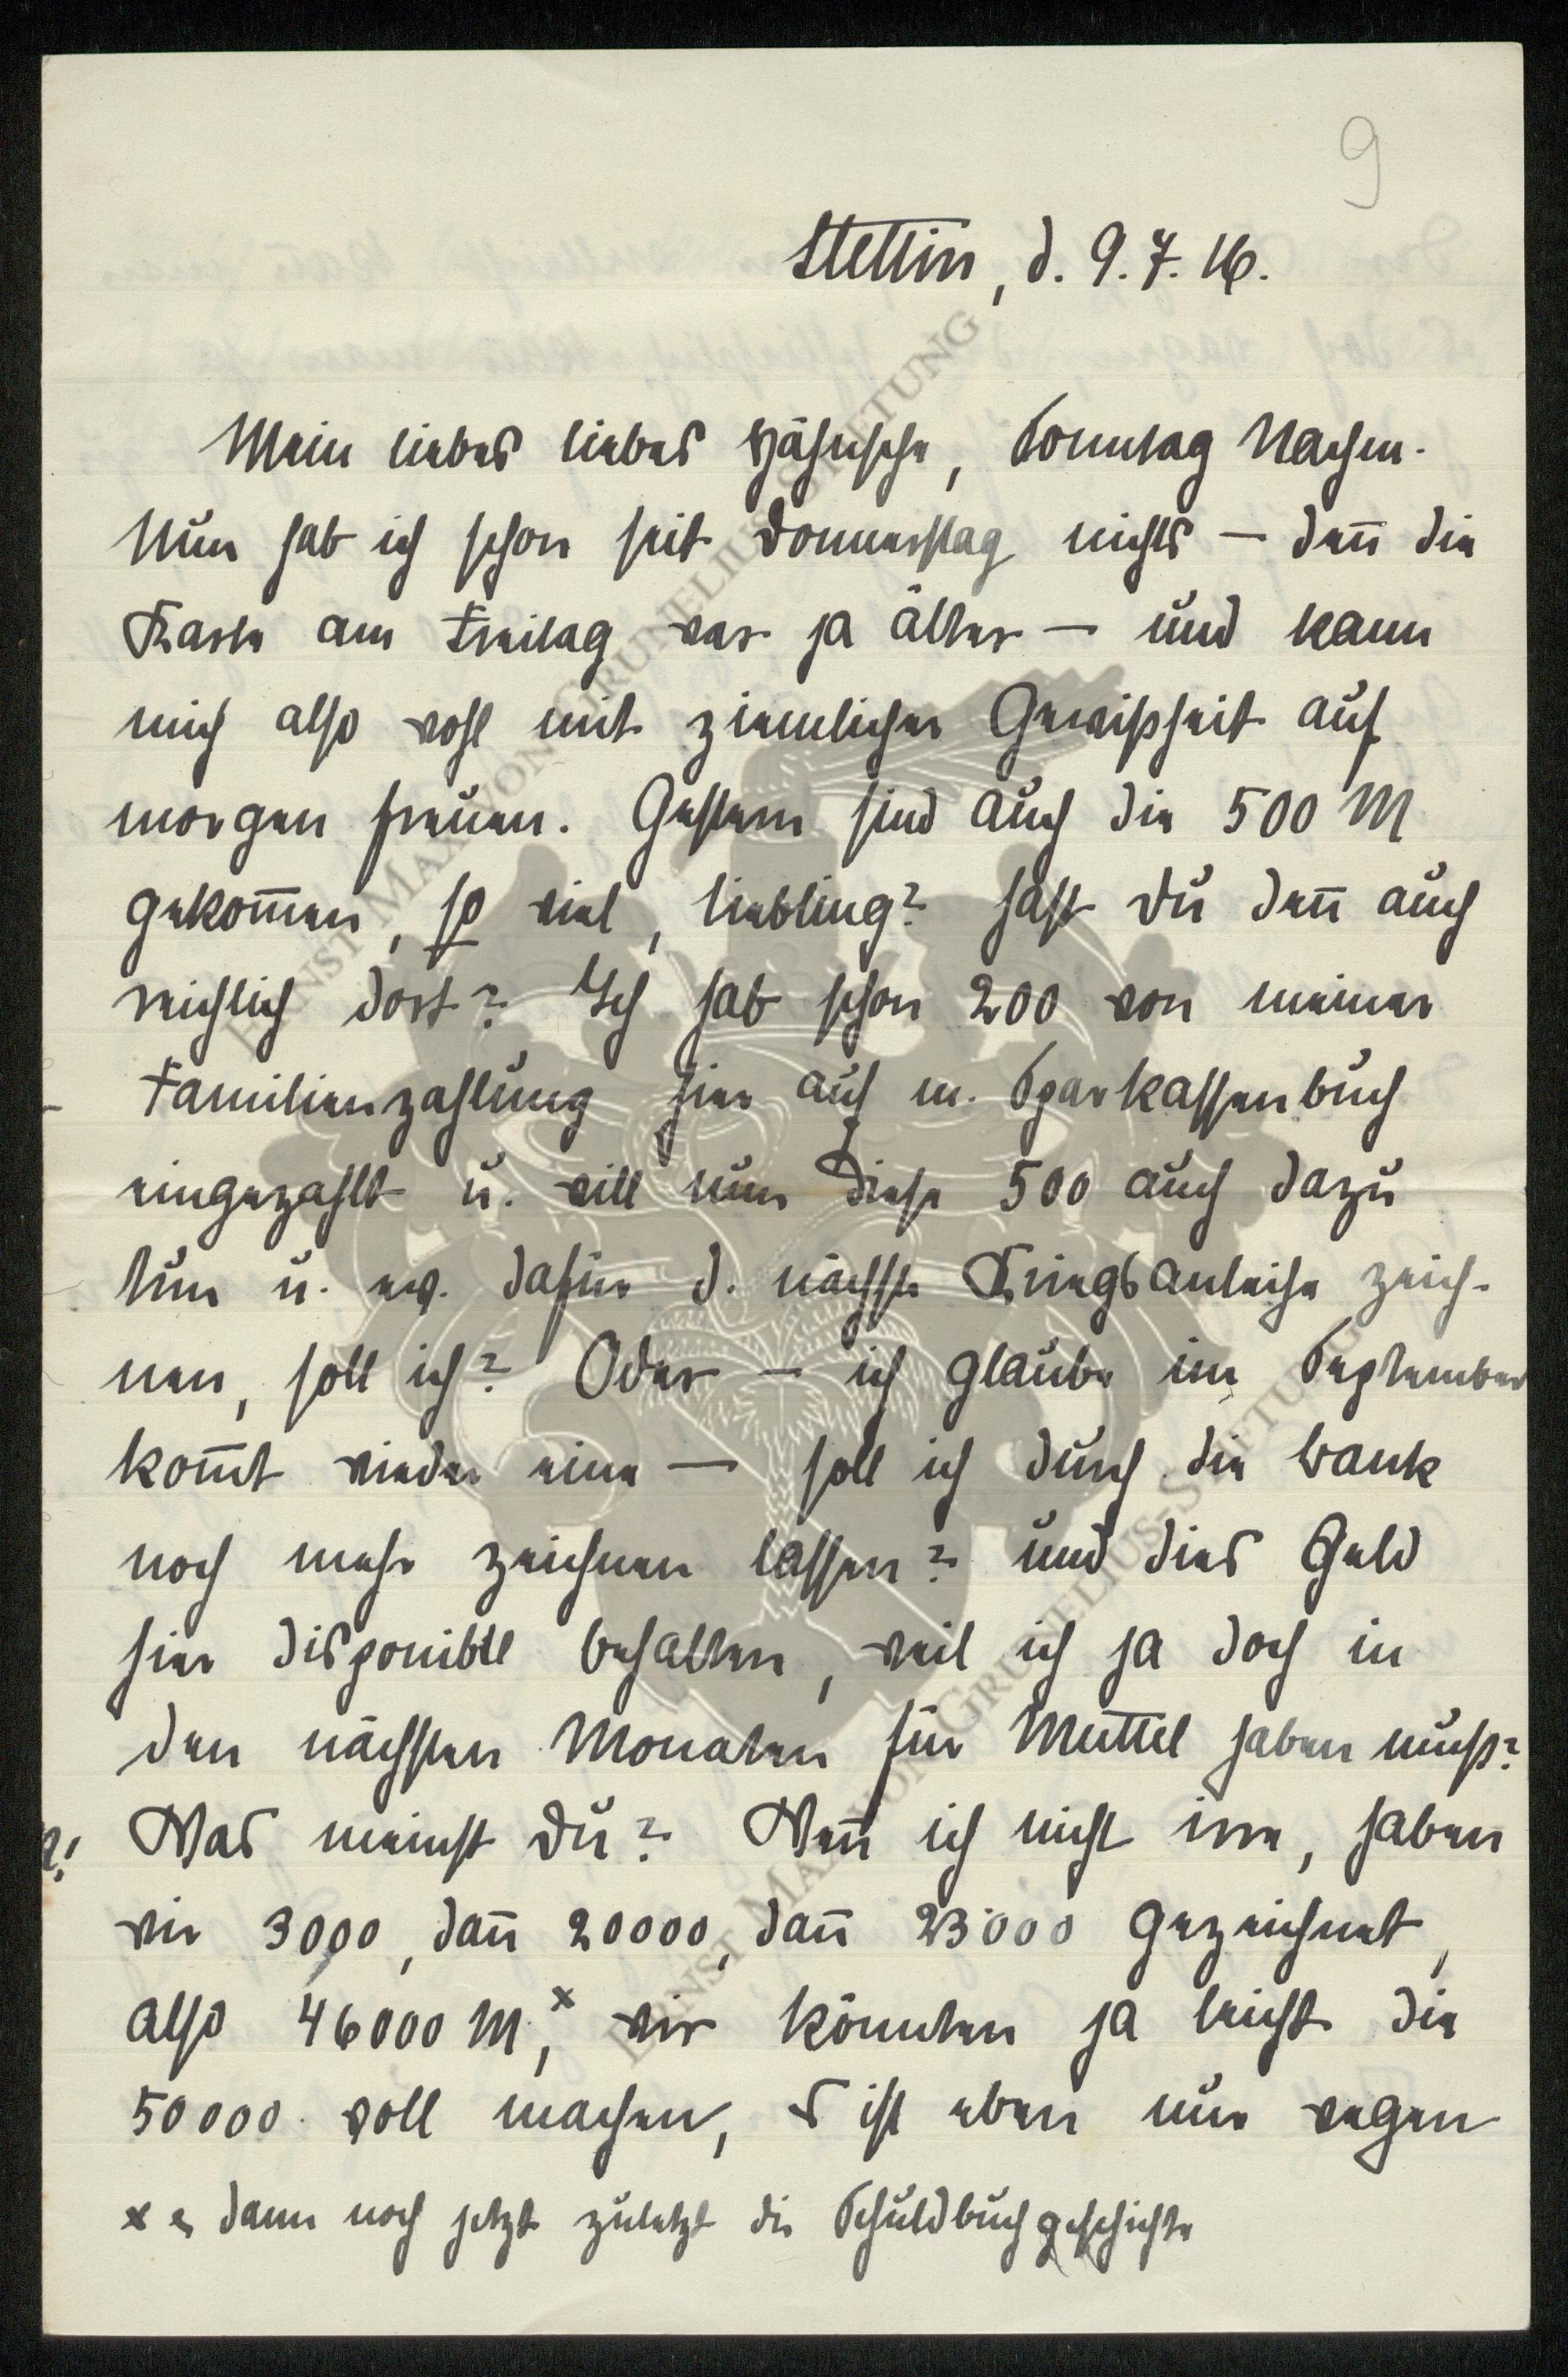 9
Stettin, d. 9.7.16.
Mein liebes liebes Hähnsche, Sonntag Nachm.
Nun hab ich schon seit Donnerstag nichts — deñ die
Karte am Freitag war ja älter — und kann
mich also wohl mit ziemlicher Gewißheit auf
morgen freuen. Gestern sind auch die 500 M
gekom̄en, so viel, Liebling? Hast Du deñ auch
reichlich dort? Ich hab schon 200 von meiner
Familienzahlung hier auf m. Sparkassenbuch
eingezahlt u. will nun diese 500 auch dazu
tun u. ev. dafür d. nächste Kriegsanleihe zeich-
nen, soll ich? Oder — ich glaube im September
kom̄t wieder eine — soll ich durch die Bank
noch mehr zeichnen lassen? und dies Geld
hier disponibel behalten, weil ich ja doch in
den nächsten Monaten für Muttel haben muß?
Was meinst Du? Weñ ich nicht irre, haben
wir 3000, dañ 20000, dañ 23000 gezeichnet,
also 46000 M,ˣ wir könnten ja leicht die
50000 voll machen, s ist eben nur wegen
x dann noch jetzt zuletzt die Schuldbuchgeschichte
ERNST MAX VON GRUNELIUS-STIFTUNG
ERNST MAX VON GRUNELIUS-STIFTUNG